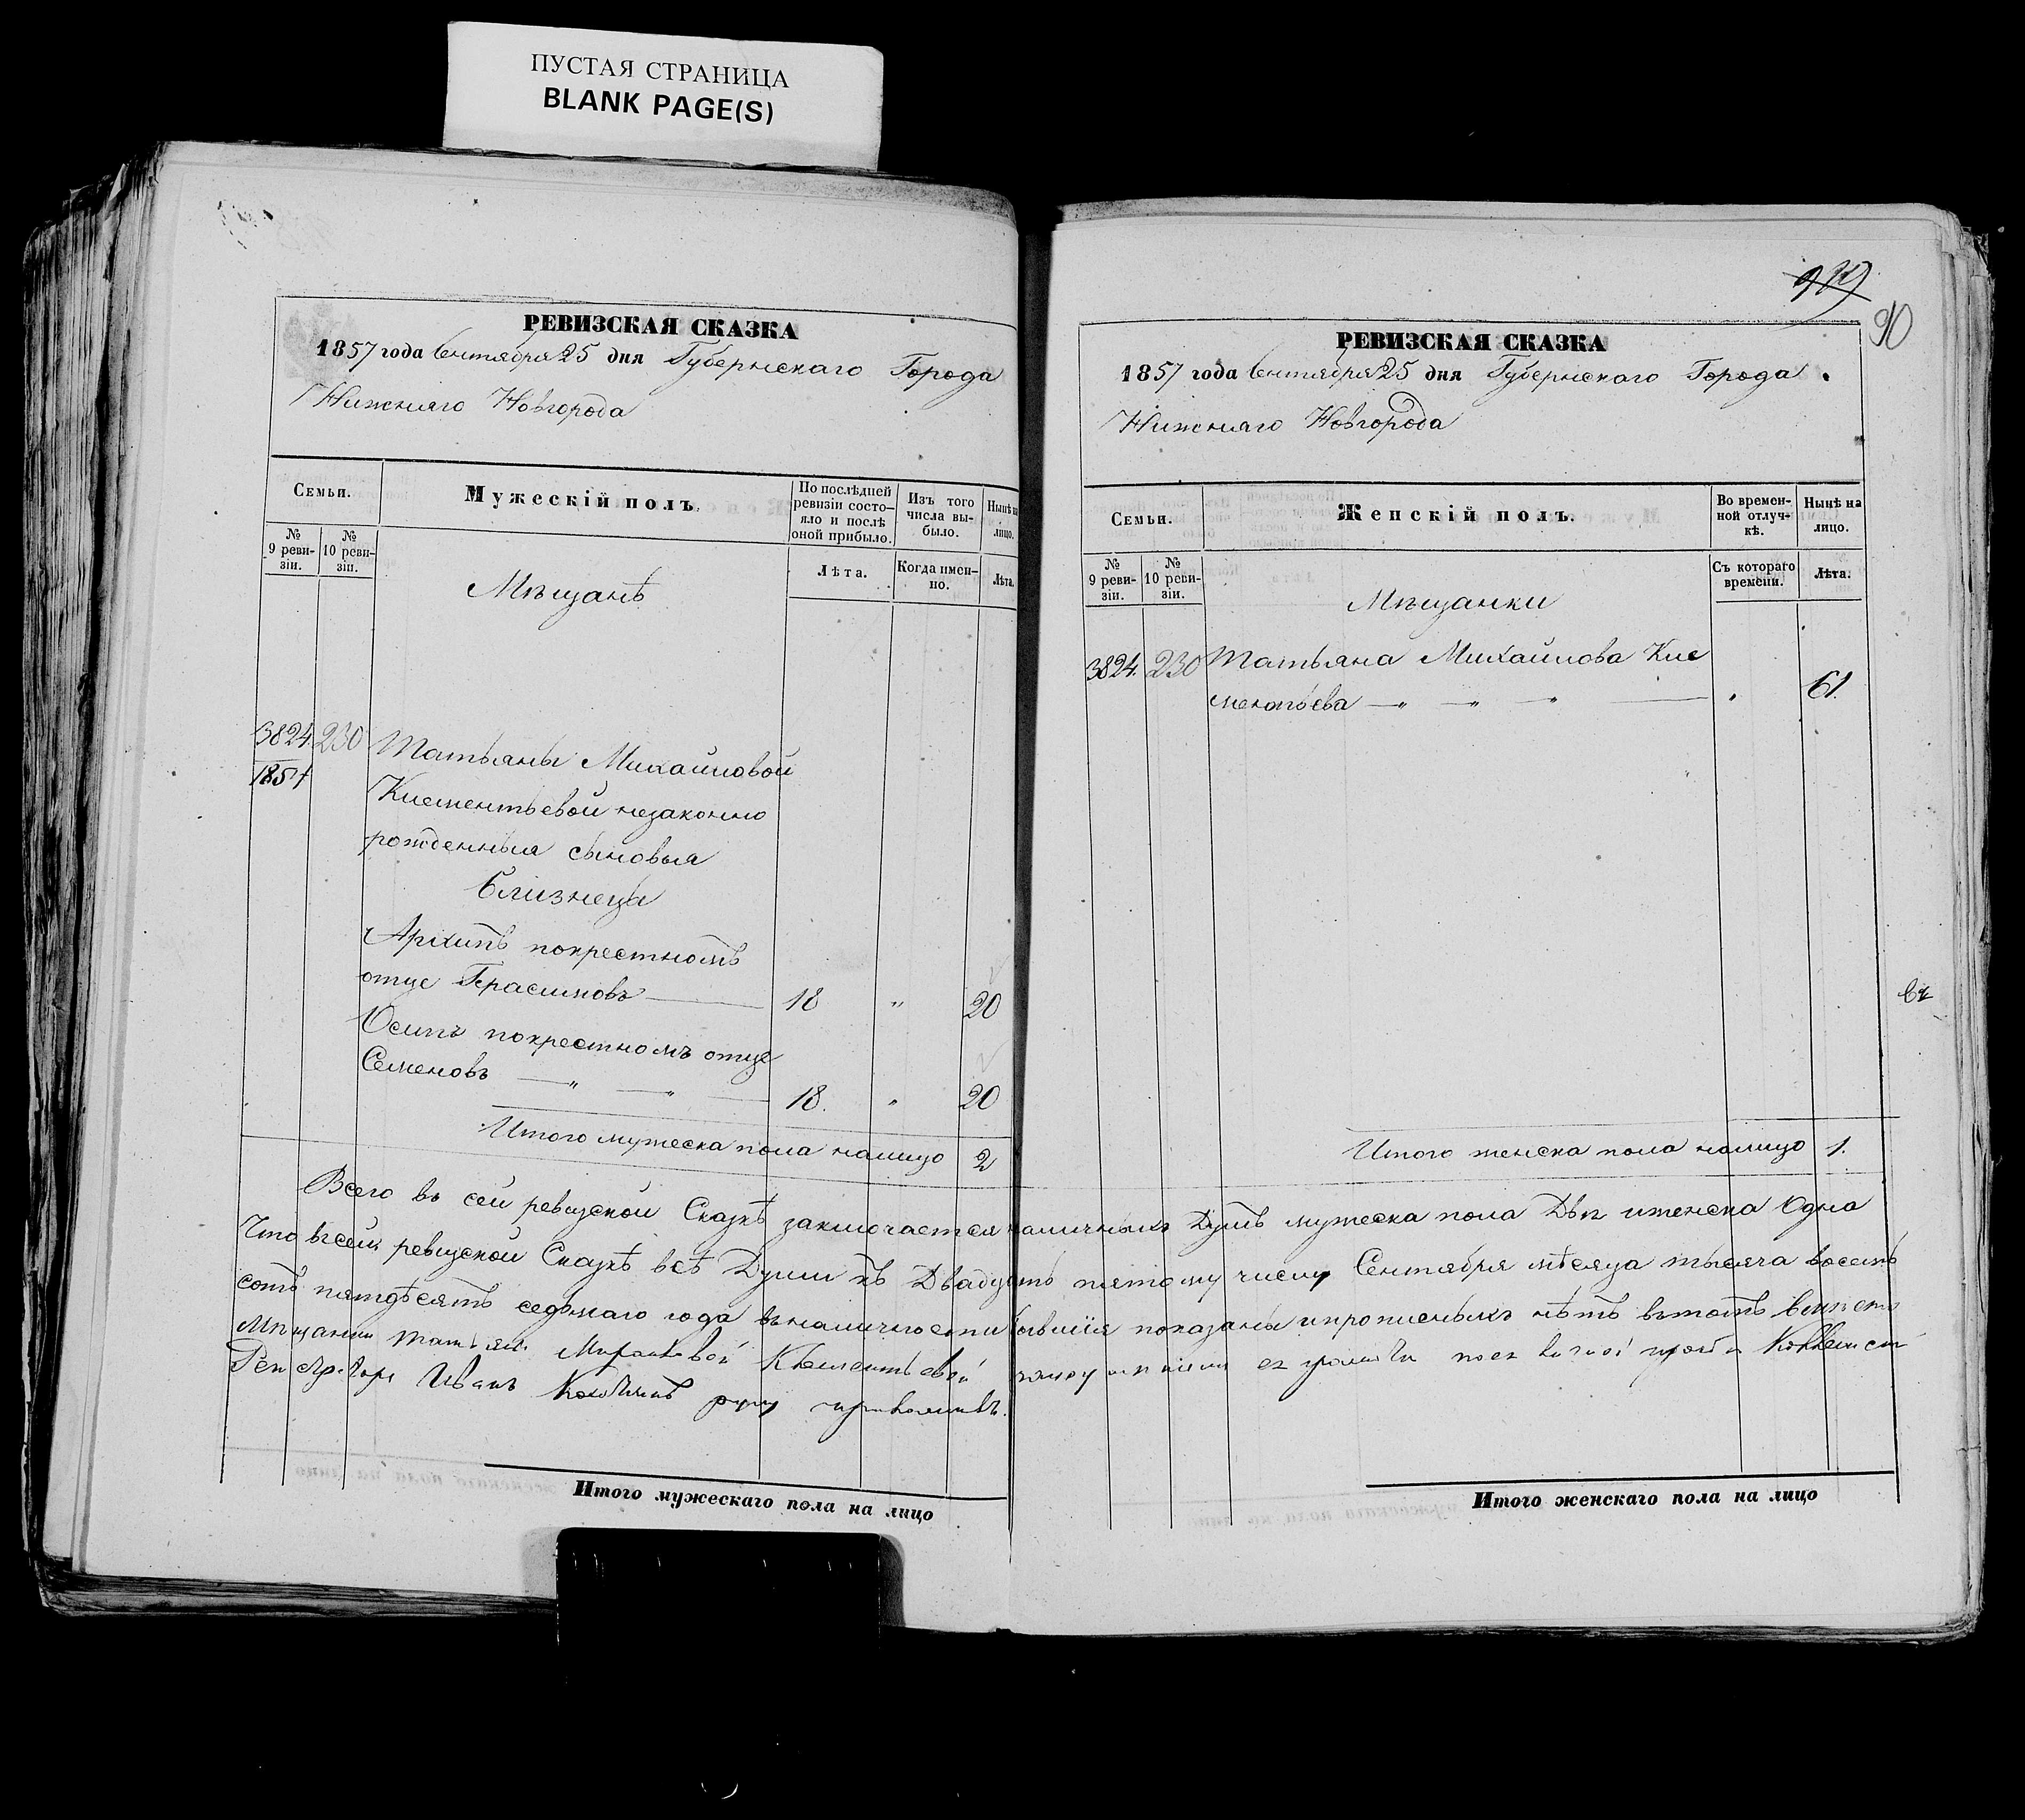 ПУСТАЯ СТРАНИЦА
BLANK PAGE(S)
РЕВИЗСКАЯ СКАЗКА
1857 года Сентября 25 дня Губернскаго Города
Нижняго Новгорода
Семьи.
Мужескій полъ.
По послѣдней
ревизіи состо-
яло и послѣ
оной прибыло.
Изъ того
числа вы-
было.
Нынѣ на
лицо.
№
9 реви-
зіи.
№
10 реви-
зіи.
Лѣта.
Когда имен-
но.
Лѣта.
Мѣщанѣ
3824. 230 Татьяны Михайловой
Клементьевой незаконно
рожденныя сыновья
Близнецы
Архипъ покрестномъ
отце Герасимовъ 18 " 20
Осипъ покрестномъ отце
Семеновъ — " — " — 18. " 20
Итого мужеска пола налицо 2
РЕВИЗСКАЯ СКАЗКА
1857 года Сентября 25 дня Губернскаго Города
Нижняго Новгорода
90
Семьи.
Женскій полъ.
Во времен-
ной отлуч-
кѣ.
Нынѣ на
лицо.
№
9 реви-
зіи.
№
10 реви-
зіи.
Съ котораго
времени.
Лѣта.
Мѣщанки
3824. 230 Татьяна Михайлова Кле
ментьева — " — " — " — " 61.
Итого женска пола налицо 1.
Всего въ сей ревизской Сказкѣ заключается наличныхъ Душъ мужеска пола Двѣ иженска Одна
Что всей ревизской Сказкѣ всѣ Души къ Двадцать пятому числу Сентября мѣсяца тысяча восемь
сотъ пятдѣсятъ седьмаго года вналичности бывшія показаны ипрописныхъ нѣтъ вътомъ вместо
Мещанки Татьяны Михайловой Клементьевой
Иванъ руку приложилъ.
Итого мужескаго пола на лицо
Итого женскаго пола на лицо